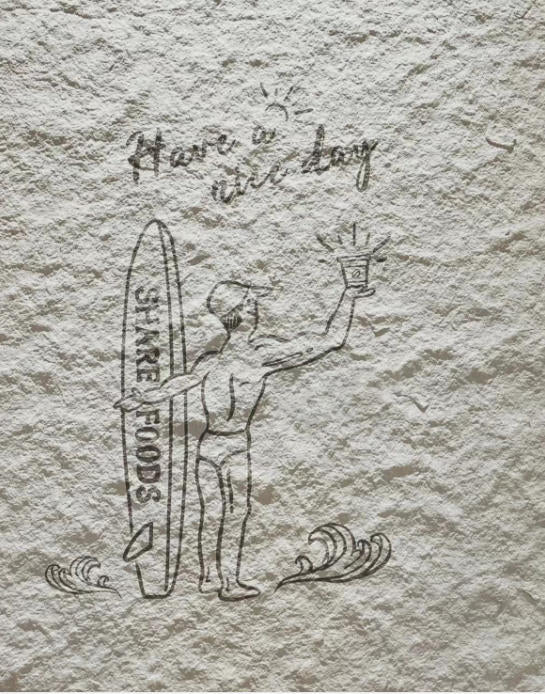 Have a
nice day
SHARE FOODS